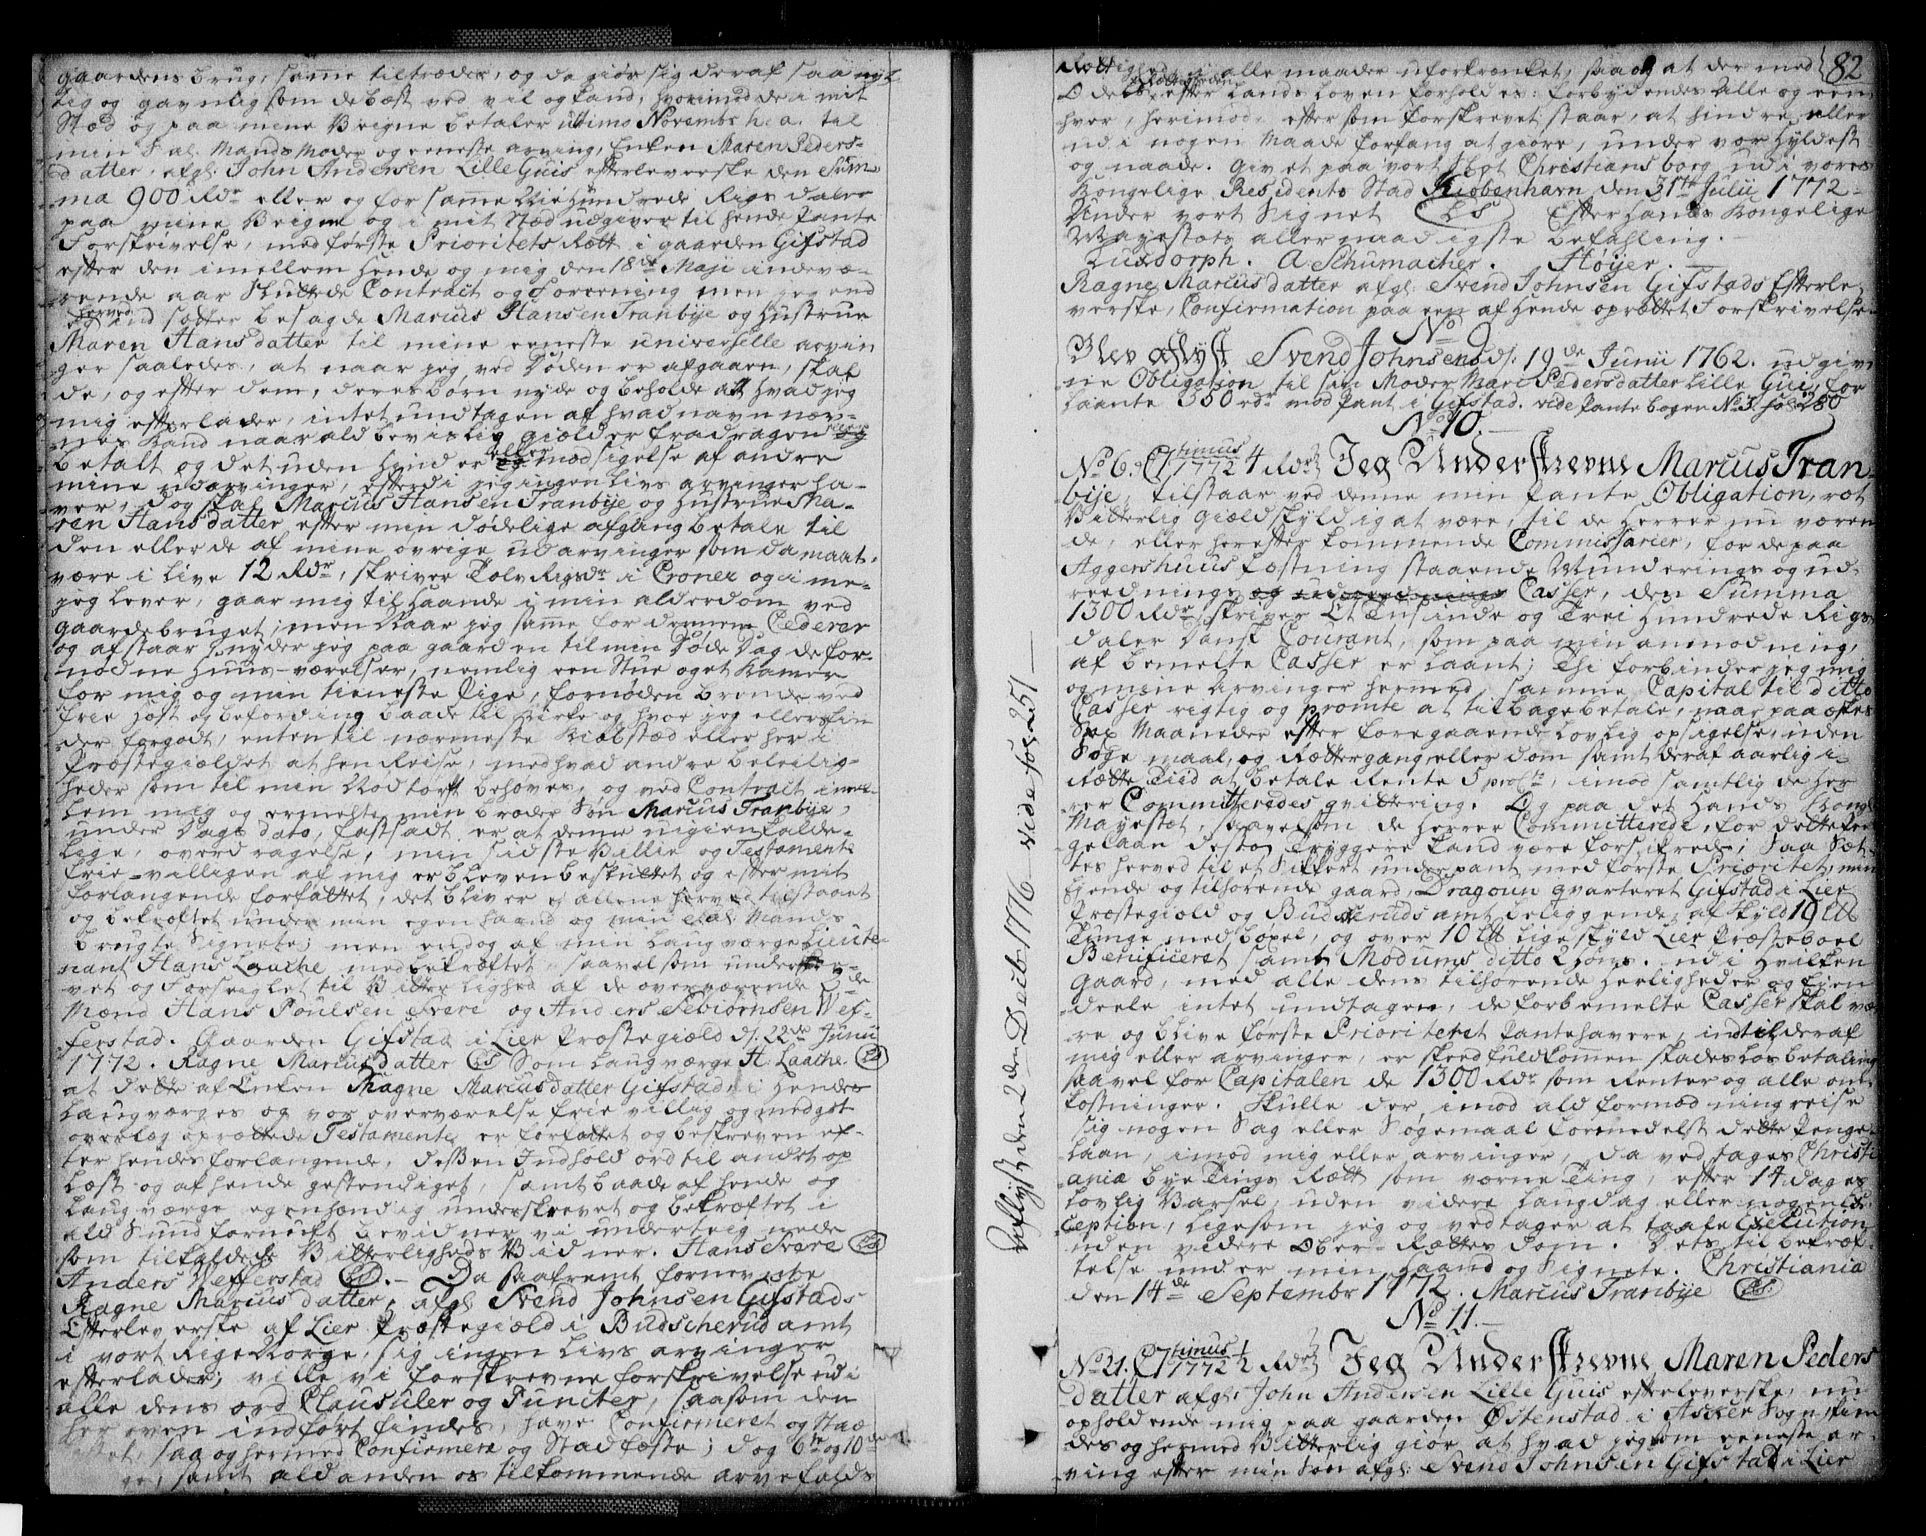 gaardens brug, same tiltræder, og da giør sig deraf saa nyt-
tig og gavnlig som de bæst ved, vil og kand, hvorimod de i mit
Stæd og paa mine Veigne betaler ultimo Novembr h: a: til
min Sal. Mands Moder og eeneste arving, Enken Maren Peders-
datter, afg: John Andersen Lille Guis efterleverske den Sum-
ma 900 Rdr eller og for same Nie Hundrede Rigsdaler
paa mine Veigne og i mit Stæd udgiver til hende Pante
Forskrivelse, med første Prioritets Rætt i gaarden Gifstad
efter den imellem hende og mig den 18de Maji indevæ-
rende aar sluttede Contract og Forerning, men jeg end
og herved indsætter besagde Marcus Hansen Tranbye og Hustrue
Maren Hansdatter til mine eeneste universelle arvin
ger saaledes, at naar jeg ved Døden er afgaaen, skal
de, og efter dem, deres børn nyde og beholde alt hvad jeg
mig efterlader, intet undtagen af hvad navn næv-
nes kand naar ald bevislig gield er fradragen og
betalt og det uden Hinder eller modsigelse af andre
mine udarvinger, efterdi jeg ingen Livs arvinger ha-
ver, dog skal Marcus Hansen Tranbye og Hustrue Ma-
ren Hansdatter efter min dødelige afgang betale til
den eller de af mine øvrige udarvinger som da maat-
være i live 12 Rdr, skriver Tolv Rigsdr i Croner og i me-
jeg lever, gaar mig til Haande i min alderdom ved
gaardebruget; men Naar jeg same for dennem Cederer
og afstaar nyder jeg paa gaarden til min Døde Dag de for-
nødne Huus-værelser, nemlig een Stue og et Kamer
for mig og min tieneste Pige, fornøden brende ved
frie Høst og befording baade til Kirke og hvor jeg eller fin
der forgodt, enten til nærmeste Kiøbstæd eller her i
Præstegieldet at hen Reise, med hvad andre beleilig-
heder som til min Nødtørft behøves, og ved Contract imel-
lem mig og ermelte min broder Søn Marcus Tranbye,
under Dags dato, fastsadt er at denne uigienkalde-
lige, overdragelse, min sidste Villie og Testamente
frie-villigen af mig er bleven besluttet og efter mit
forlangende forfattet, det bliver ej allene herved tilstaaet
og bekræftet under min egen haand og min Sal: Mands
brugte Signete; men endog af min laugværge Lieute-
nant Hans Laache medbekræftet, saavel som underskre-
vet og Forseiglet til Vitterlighed af de overværende 2de
Mænd Hans Poulsen Svere og Anders Tebiørnsen Wef-
ferstad. Gaarden Gifstad i Lier Præstegield d: 22de Junii
1772. Ragne Marcusdatter (LS) Som Laugværge H. Laache (LS)
at dette af Enken Ragne Marcusdatter Gifstad i hendes
Laugværges og vor overværelse frie villig og med got
overlæg oprættede Testamente er forfattet og beskreven ef-
ter hendes forlangende, deßen Indhold ord til andet op
læst og af hende gestendiget, samt baade af hende og
laugværge egenhændig underskrevet og bekræftet i
ald Sund fornuft bevidner vi undertegnede
som tilkaldede Vitterligheds Vidner. Hans Svere (LS)
Anders Wefferstad (LS). - Da saafremt fornevnte
Ragne Marcusdatter, afg: Svend Johnsen Gifstads
Efterleverske af Lier Præstegield i Budscherud amt
i vort Rige Norge, sig ingen livs arvinger
efterlader; ville vi forskrevne forskrivelse udi
alle dens ord Clausuler og Puncter, saasom den
her oven indført findes, have Confirmeret og Stad
fæstet, saa og hermed Confirmere og Stadfæste; dog 6te og 10de
penge, samt ald anden os tilkommende arvefalds
82
Rettighed i alle maader uforkrænket, saa og at der med
Odelsgodset efter Lands Loven forholdes: forbydendes Alle og een
hver, herimod, eftersom forskrevet staar, at hindre eller
udi nogen Maade forfang at giøre, under vor Hyldest
og naade. Givet paa vort Slot Christiansborg udi vores
Kongelige Residents Stad Kiøbenhavn den 31te Julii 1772
Under vort Signet (LS) Efter Hans Kongelige
Mayestæts allernaadigste befahling.
Luxdorph. A Schumacher. Høyer.
Ragne Marcusdatter afg: Svend Johnsen Gifstads Efterle
verske, Confirmation paa een af Hende oprættet Forskrivelse
No 9
Blev aflyst Svend Johnsens d: 19de Junii 1762. udgiv
ne Obligation til sin Moder Mari Pedersdatter Lille Gui, for
laante 350 rdr mod Pant i Gifstad. vide Pante bogen No 3. fol: 280
No 10.
No 6. C7timus 1772 4 Rdr Jeg Underskrevne Marcus Tran-
bye, tilstaar ved denne min Pante Obligation, ret
Vitterlig gieldskyldig at være, til de Herrer nu væren
de, eller herefter kommende Commissarier, for de paa
Aggershuus Fæstning staaende Munderings og ud-
reednings Casser, den Summa
1300 Rdr skriver Et Tusinde og Trei Hundrede Rigs
daler Dansk Courant, som paa min anmodning,
af bemelte Casser er laant; Thi forbinder jeg mig
og mine Arvinger hermed, samme Capital til ditto
Casser rigtig og promte at tilbagebetale, naar paa æskes
Sex Maaneder efter foregaaende lovlig opsigelse, uden
Søge maal, og Rættergang eller dom samt deraf aarlig i
Rætte Tiid at betale Rente 5 proCto, imod samtlig de Her
rer Committeredes qvittering. Og paa det Hands Kongl
Mayestæt, saavelsom de Herrer Committerede, for dette Pen
gelaan desto tryggere kand være forsikrede; Saa Sæt-
tes herved til et Sikkert underpant med første Prioritet, min
Ejende og tilhørende gaard, Dragoun qvarteret Gifstad i Lier
Præstegield og Budscheruds amt beliggende, af Skyld 10 Lll
Tunge med bøxel, og over 10 Lll Lige skyld Lier Præsteboel
Benificeret samt Modums ditto Lhom:, udi hvilken
gaard, med alle dens tilhørende Herligheder og Eyen
deele intet undtagen, de forbemelte Casser skal væ
re og blive første Prioriteret Pantehavere, indtil deraf
mig eller arvinger, er skeed fuldkomen skadesløs betaling
saavel for Capitalen de 1300 Rdr som Renter og alle om
kostninger. Skulle der, imod ald formodning reise
sig nogen Sag eller Søgemaal formedelst dette Penge-
laan, imod mig eller arvinger, da vedtages Christi
aniæ bye Tings Rætt som værne Ting, efter 14 dages
Lovlig Varsel, uden videre Langdag eller nogen Ex-
ception, ligesom jeg og vedtager at taale Execution
uden videre Ober-Rættes Dom. Dets til bekræf-
telse under min Haand og Signete. Christiania
den 14de Septembr 1772. Marcus Tranbye (LS).
No 11.
No 21. C7timus 1772 1/2 Rdr Jeg Underskrevne Maren Peders
datter afg: John Andersen Lille Guis efterleverske, nu
opholdende mig paa gaarden Østenstad i Asker Sogn, kien
des og hermed Vitterlig giør, at hvad jeg som eeneste ar-
ving efter min Søn afg: Svend Johnsen Gifstad i Lier
Aflyst den 2den Decbr 1776 vide fol: 251